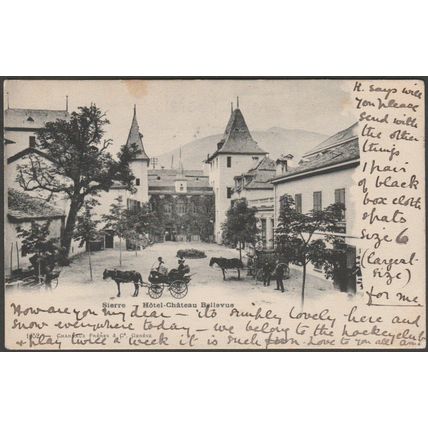 H. says will
you please
send with
the other
things
1 pair
of black
box cloth
spats
size 6
(largest
size)
for me
Sierre Hôtel-Château Bellevue
How are you my dear – its simply lovely here and
snow everywhere today – we belong to the hockey club
Charnaux Frères & Co. Genève
& play twice a week it is such fun. Love to you all